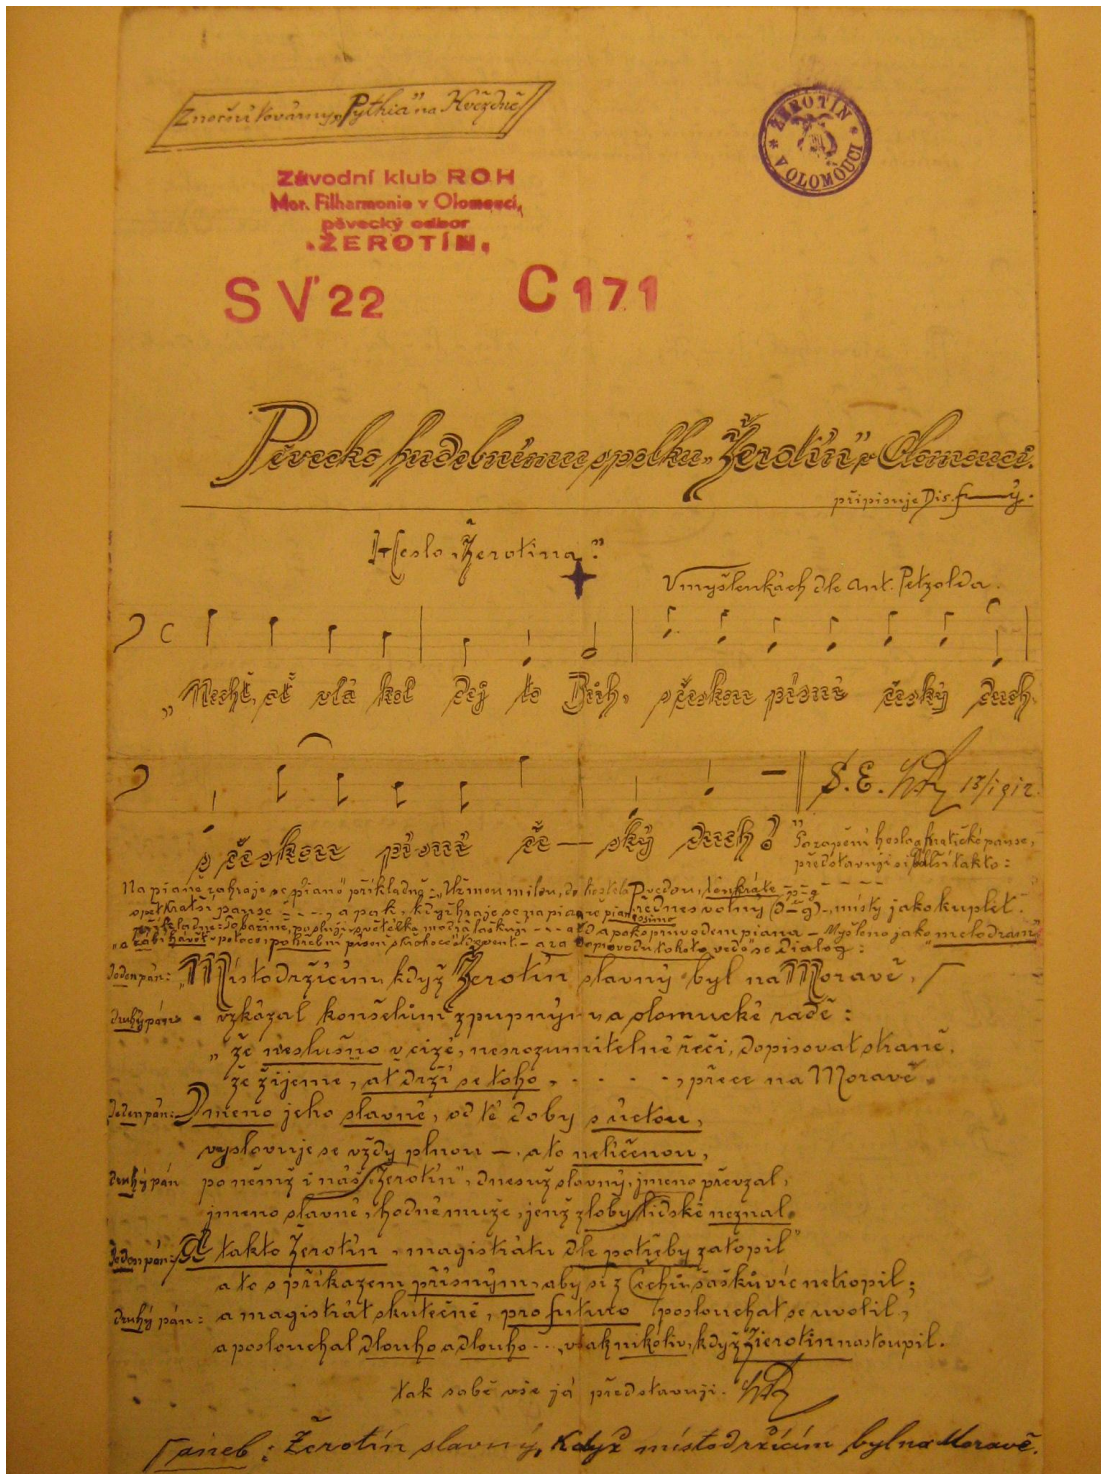 Znoční továrny „Pythia" na Hvězdně
ŽEROTÍN
V OLOMOUCI
Závodní klub ROH
Mor. Filharmonie v Olomouci,
pěvecký odbor
„ŽEROTÍN„
SV 22 C 171
Pěvecko hudebnímu spolku „Žerotín" v Olomouci.
připisuje Dis. f—ý.
Heslo „Žerotína"
V myšlenkách dle Ant. Petzolda.
„Nechť, ať vlá kol dej to Bůh, s českou písní český duch,
s českou písní če—ský duch!"
S. E. 13/1912.
Po zapění hesla a kratičké pause,
představuji si další takto:
Na piano zahraje se „piano" příkladně: do kostela Tě povedou, tenkráte
a pak, když hraje se na piano pianissimo přednes volný místy jako kuplet.
a pak o průvodem piana – Myšleno jako „melodram"
se dialog:
Jeden pán: „Místodržícím, když Žerotín slavný byl na Moravě,
druhý pán: vzkázal konšelům zpupným na olomucké radě:
„že neslušno v cizé, nesrozumitelné řeči, dopisovat straně,
že žijeme, ať drží se toho, . . . . , přece na Moravě.
Jeden pán: Jméno jeho slavné, od té doby s úctou,
vyslovuje se vždy plnou –. a to nelíčenou,
druhý pán po němž i náš „Žerotín", dnes už slavný, jmeno převzal,
jmeno slavné, hodné muže, jenž zloby lidské neznal.
Jeden pán: A takto Žerotín, magistrátu dle potřeby zatopil"
a to s příkazem přísným, aby si z Čechů šašků víc netropil;
druhý pán: a magistrát skutečně, pro futuro poslouchat se uvolil,
a poslouchal dlouho a dlouho . . . , však nikoliv, když Žierotín nastoupil.
tak sobě vše já představuji.
aneb: Žerotín slavný, když místodržícím byl na Moravě.